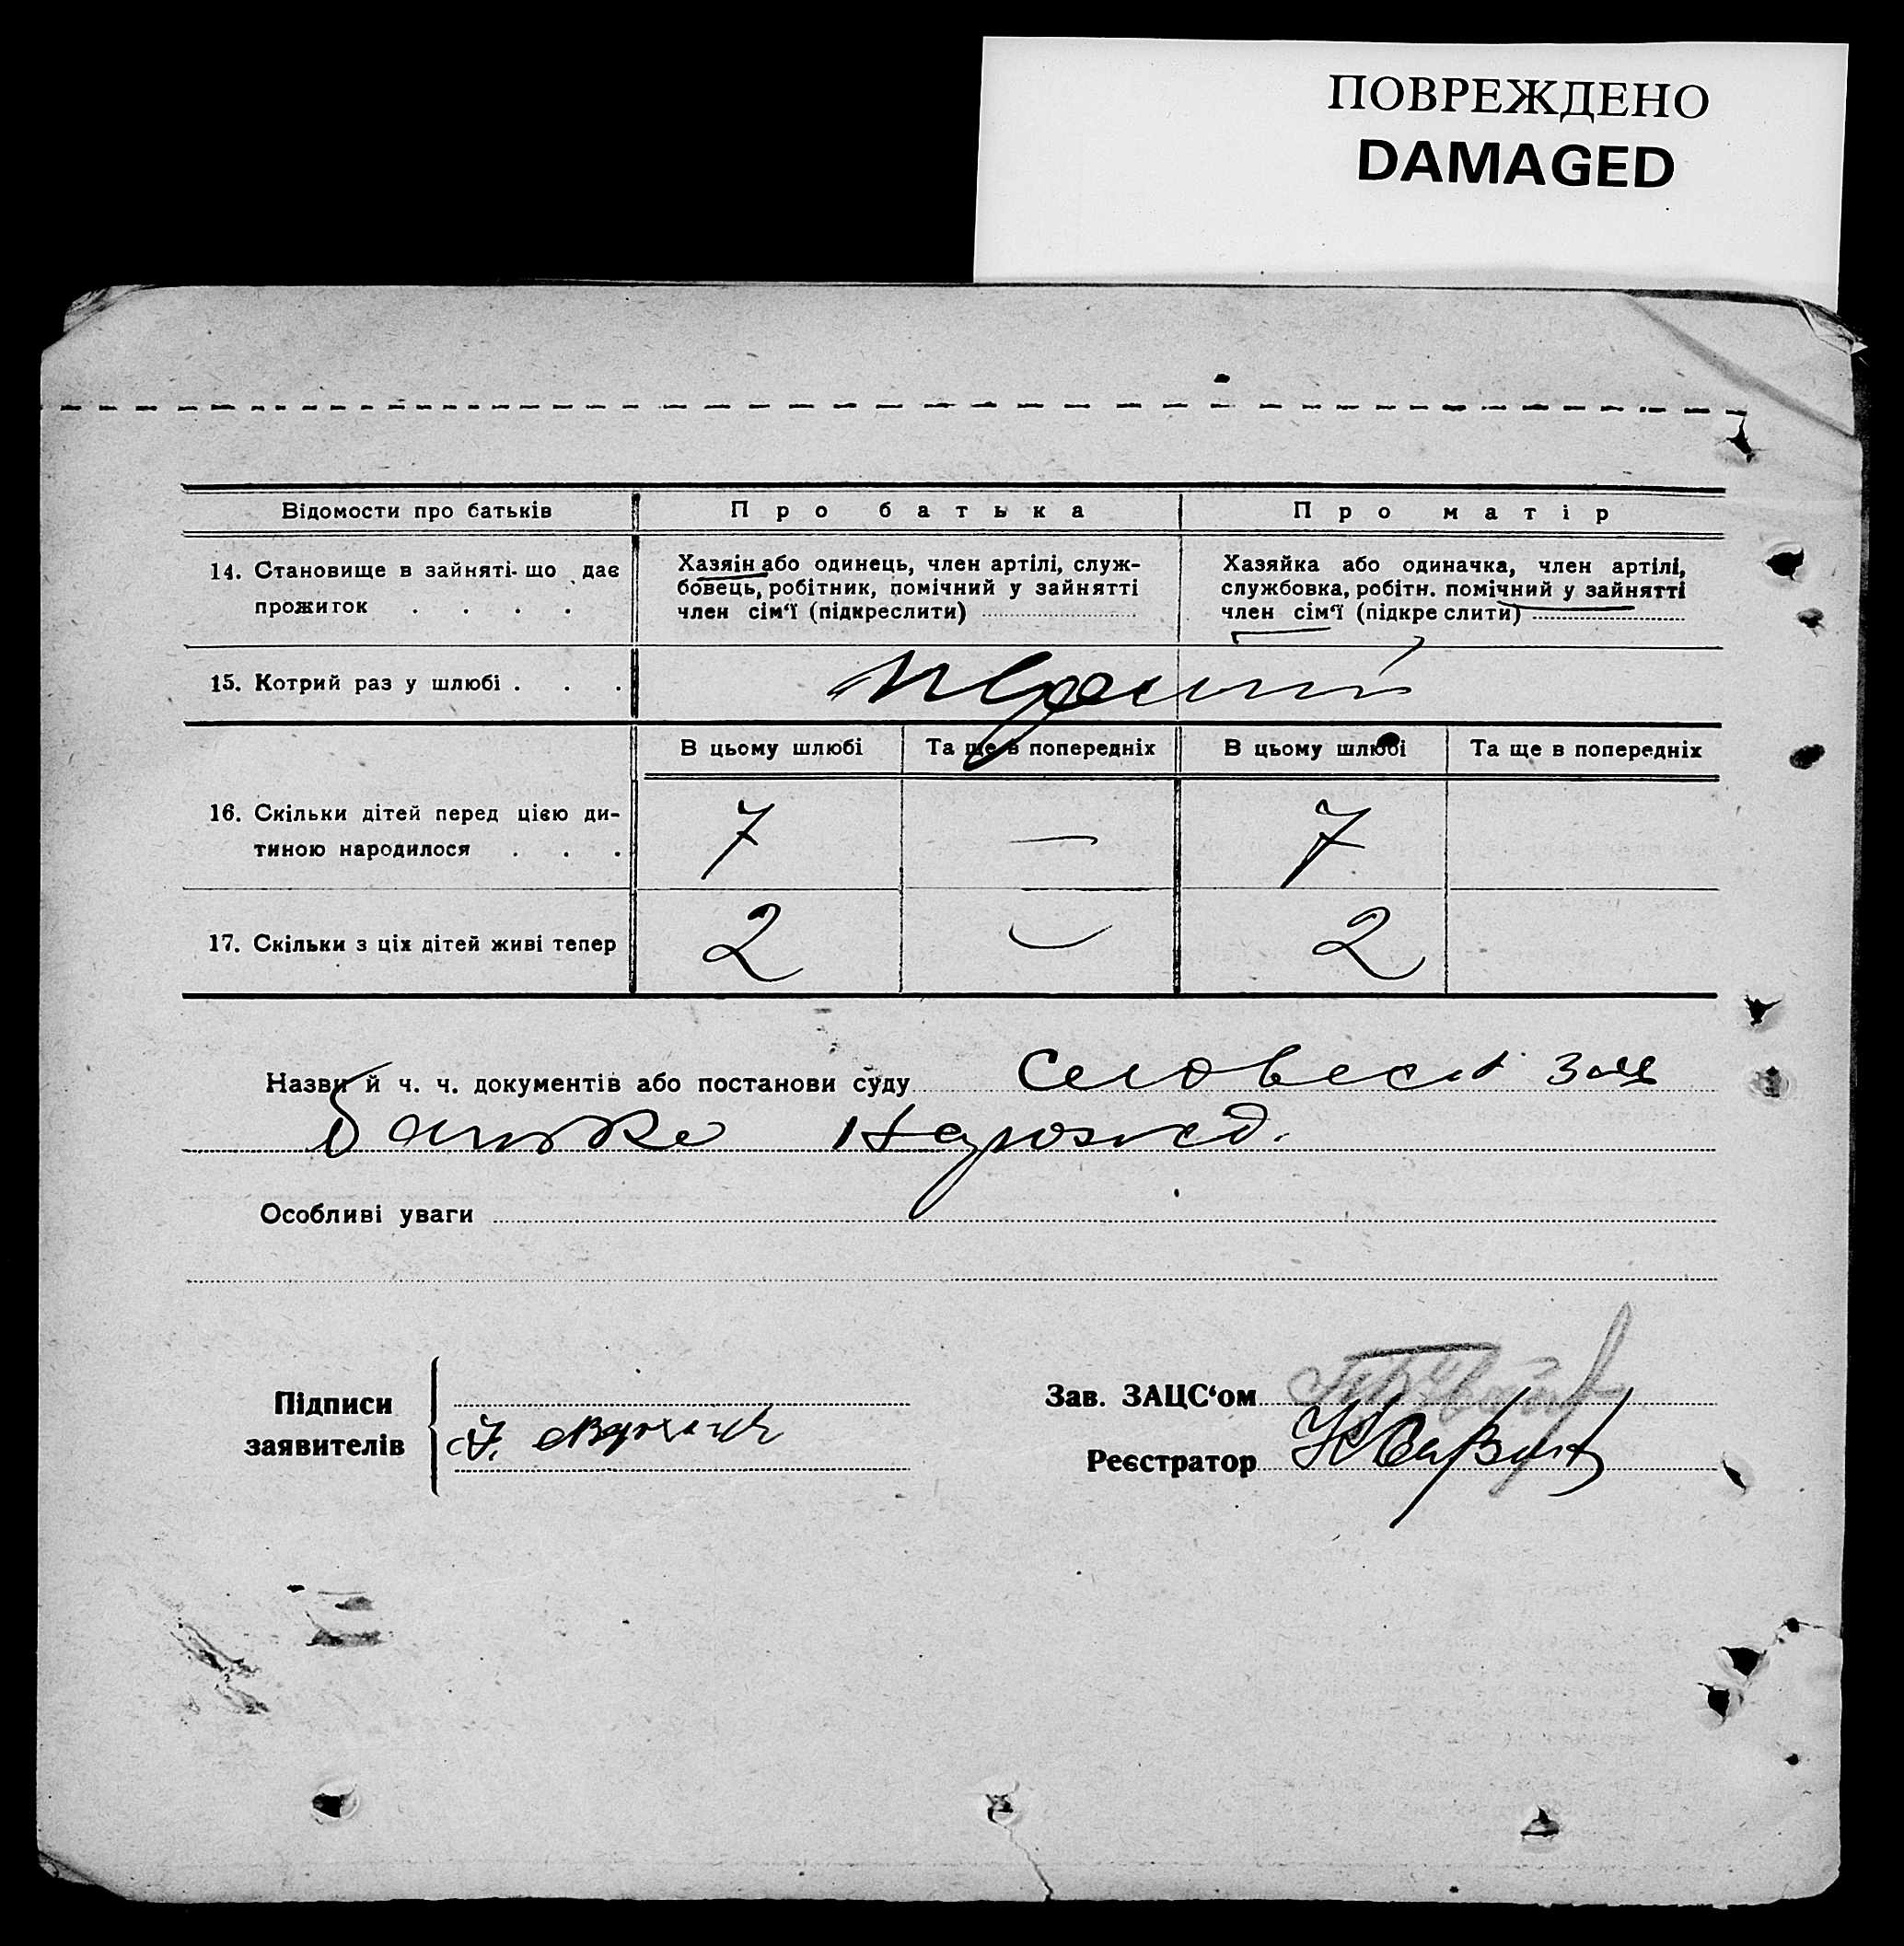 ПОВРЕЖДЕНО
DAMAGED
Відомости про батьків
Про батька
Про матір
14. Становище в зайняті-що дає
прожиток . . . .
Хазяін або одинець, член артілі, служ-
бовець, робітник, помічний у зайнятті
член сім'ї (підкреслити)
Хазяйка або одиначка, член артілі,
службовка, робітн. помічний у зайнятті
член сім'ї (підкре слити)
15. Котрий раз у шлюбі . . .
перший
В цьому шлюбі
Та ще в попередніх
В цьому шлюбі
Та ще в попередніх
16. Скільки дітей перед цією ди-
тиною народилося . . .
7 — 7
17. Скільки з ціх дітей живі тепер
2 — 2
Назви й ч. ч. документів або постанови суду
батька
Особливі уваги
Підписи
заявителів
Зав. ЗАЦС'ом
Реєстратор